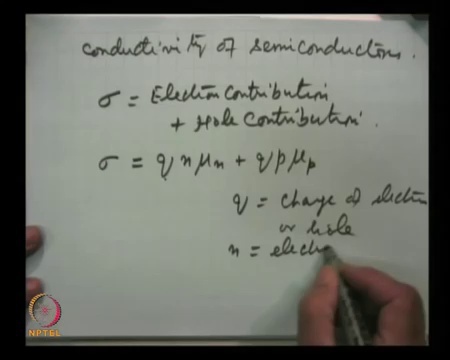 conductivity of semiconductors.
σ = Electron contribution
+ Hole contribution.
σ = q n μn + q p μp
q = charge of electron
or hole
n = electr
NPTEL